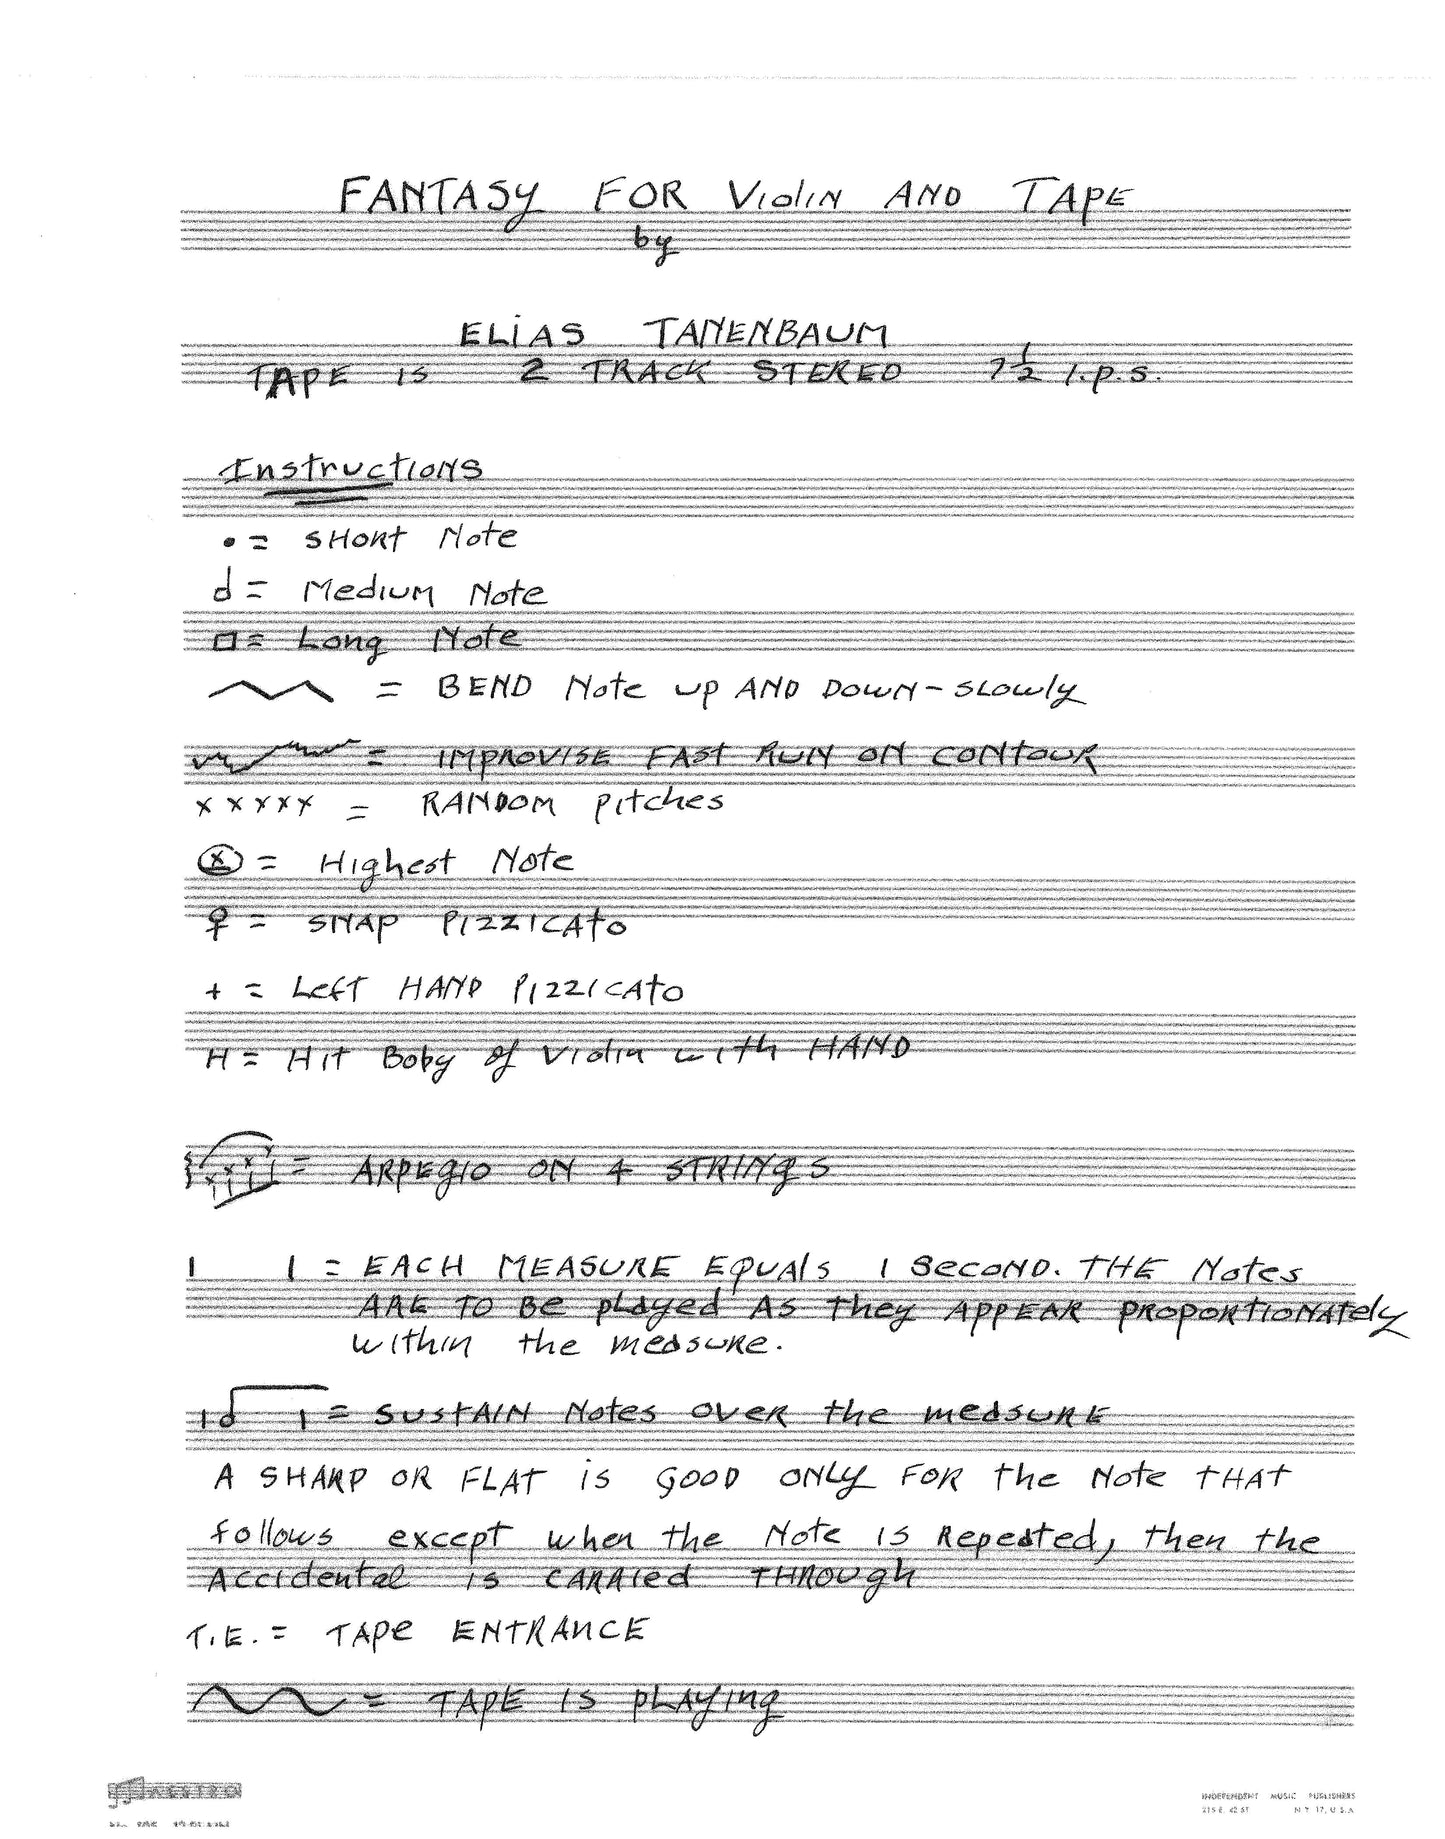 FANTASY FOR Violin AND TAPE
by
ELIAS TANENBAUM
TAPE is 2 TRACK STEREO 7 1/2 i.p.s.
Instructions
• = SHORT Note
d = Medium Note
□ = Long Note
= BEND Note up AND DOWN - SLOWly
= IMPROVISE FAST RUN ON CONTOUR
x x x x x = RANDOM pitches
ⓧ = Highest Note
♀ = SNAP PIZZICATO
+ = Left HAND PIZZICATO
H = Hit Body of Violin with HAND
= ARPEGIO ON 4 STRINGS
| | = EACH MEASURE EQUAls 1 SECOND. THE Notes
ARE TO BE played AS they APPEAR PROPORTIONATEly
within the measure.
= SUSTAIN Notes OVER the measURE
A SHARP OR FLAT is GOOD ONLY FOR the Note THAT
follows except when the Note is Repeated, then the
Accidental is CARRIED THROUGH
T.E. = TAPE ENTRANCE
= TAPE IS plAYING
INDEPENDENT MUSIC PUBLISHERS
215 E. 42 ST N.Y. 17, U.S.A.